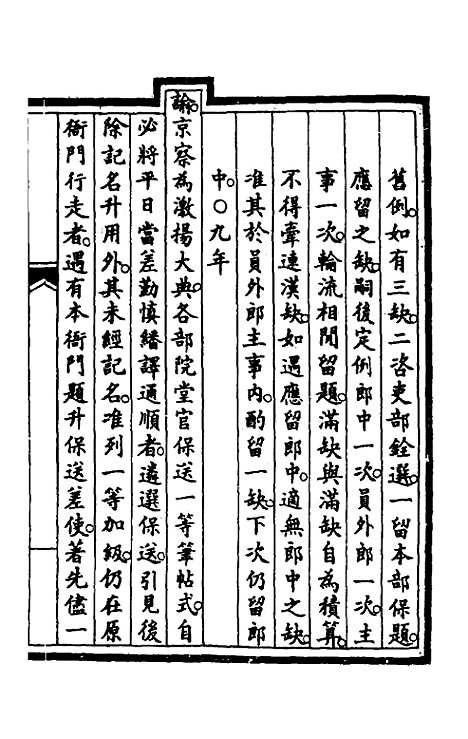 舊例。如有三缺。二咨吏部銓選。一留本部保題。
應留之缺。嗣後定例郎中一次。員外郎一次。主
事一次。輪流相閒留題。滿缺與滿缺自為積算。
不得牽連漢缺。如遇應留郎中。適無郎中之缺。
准其於員外郎主事內。酌留一缺。下次仍留郎
中。〇九年
諭。京察為激揚大典。各部院堂官保送一等筆帖式。自
必將平日當差勤慎繙譯通順者。遴選保送。引見後
除記名升用外。其未經記名。准列一等加級。仍在原
衙門行走者。遇有本衙門題升保送差使。著先儘一